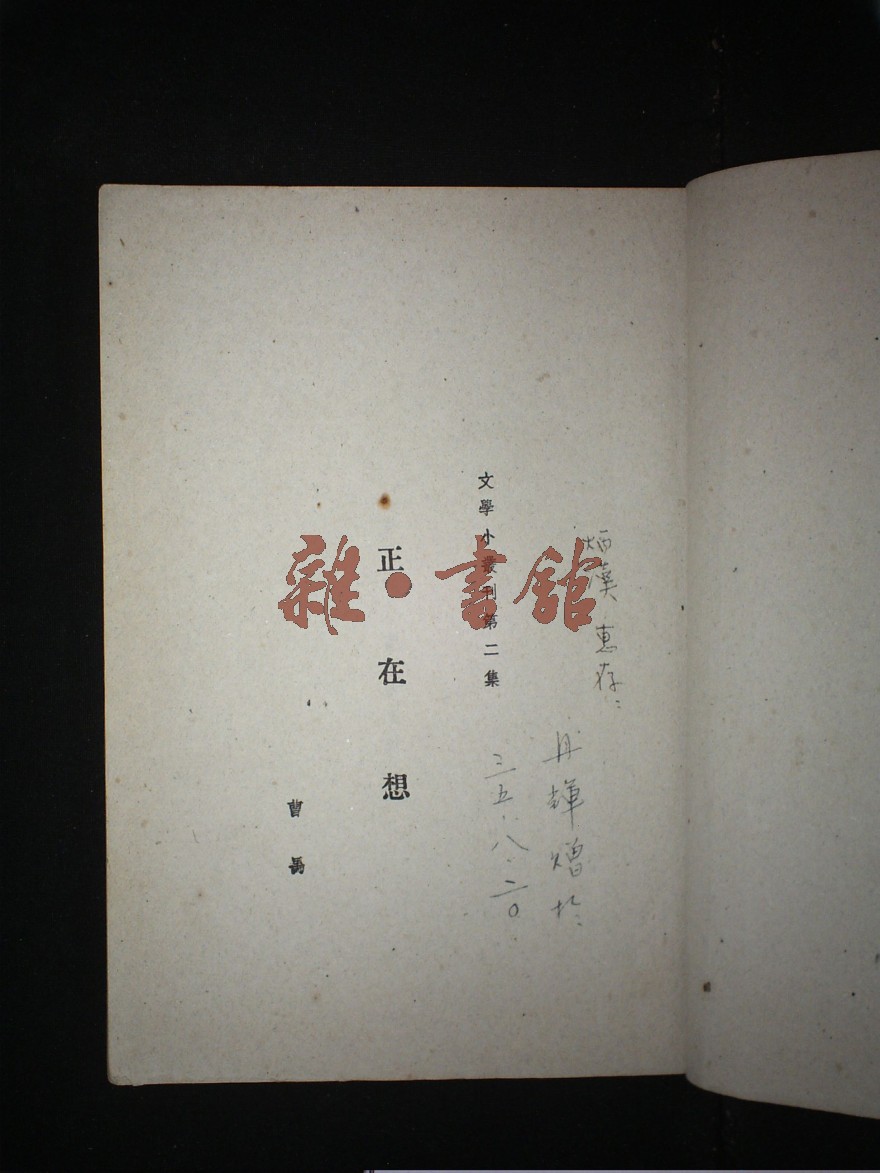 炳漢 惠存:
丹輝 贈於:
三五.八.二〇
文學小叢刊第二集
正在想
曹禺
雜·書館